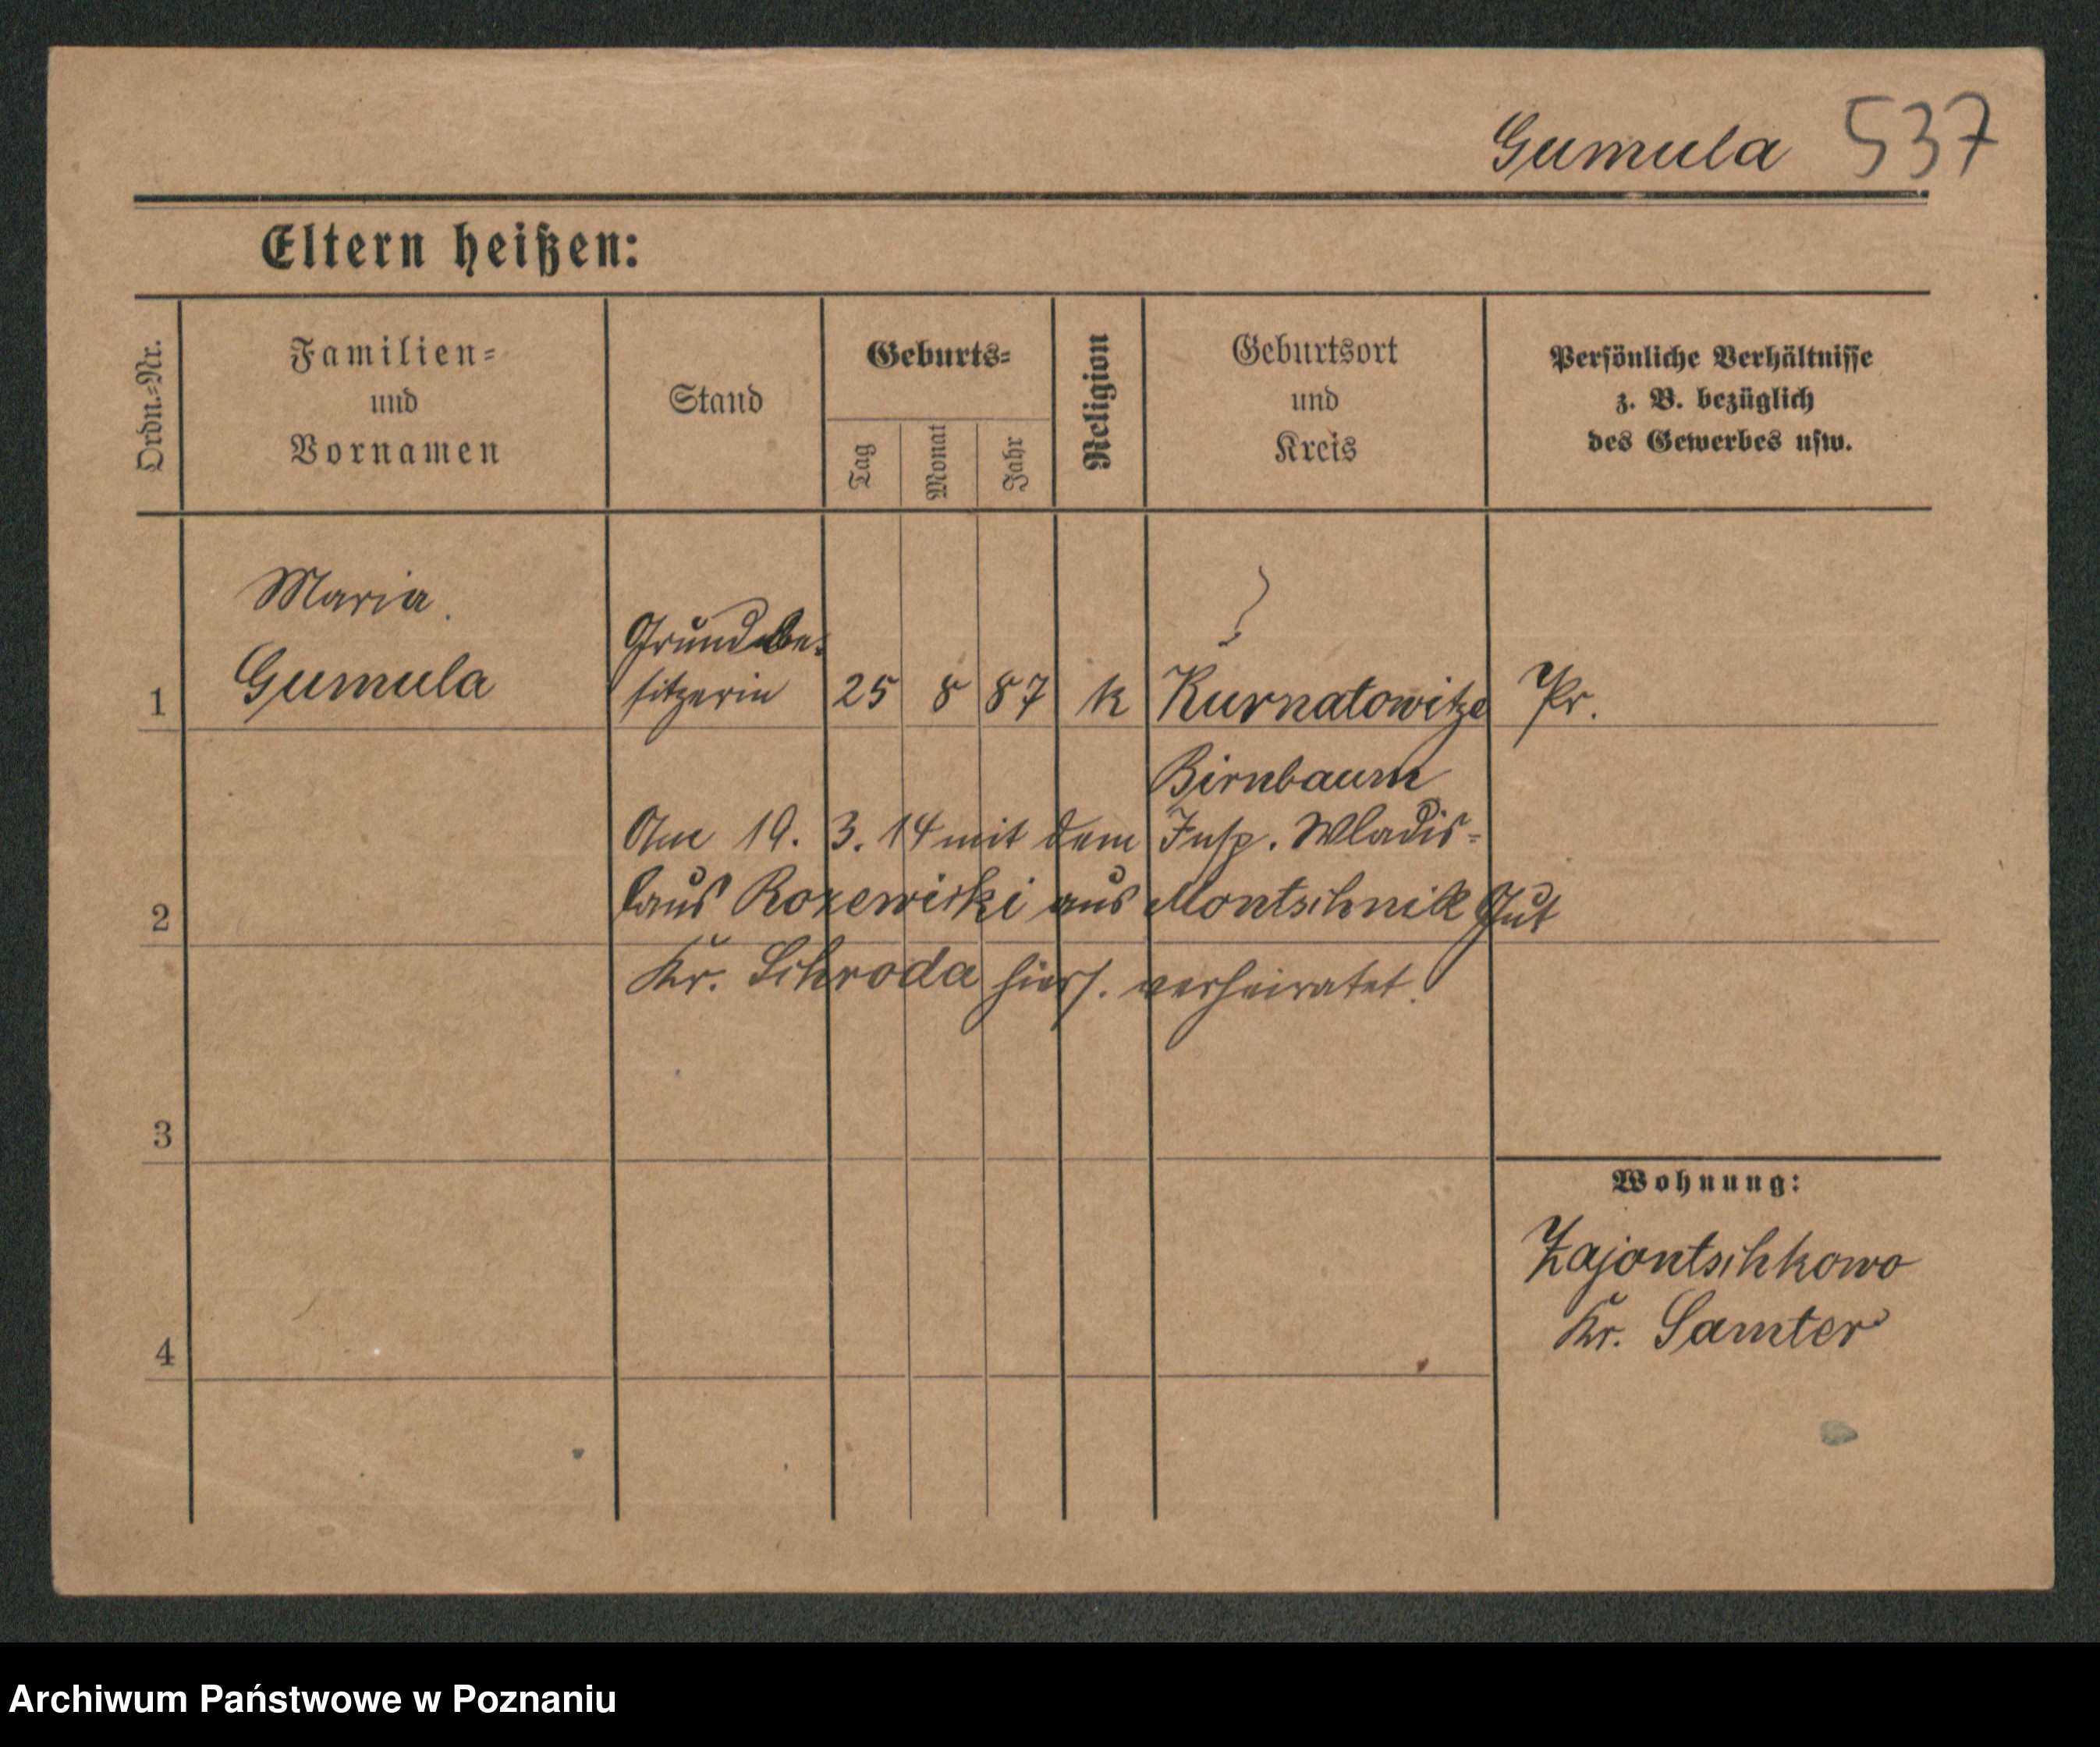 Gumula 537
Eltern heißen:
Ordn.=Nr.
Familien=
und
Vornamen
Stand
Geburts=
Tag
Monat
Jahr
Religion
Geburtsort
und
Kreis
Persönliche Verhältnisse
z. B. bezüglich
des Gewerbes usw.
Maria
Gumula
Grundbe-
sitzerin
1 25 8 87 k Kurnatowitze Pr.
Birnbaum
Am 19. 3. 14 mit dem Insp. Wladis-
2 laus Rozewicki aus Montschnik Gut
Kr. Schroda hiers. verheiratet.
3
Wohnung:
Zajontschkowo
Kr. Samter
4
Archiwum Państwowe w Poznaniu